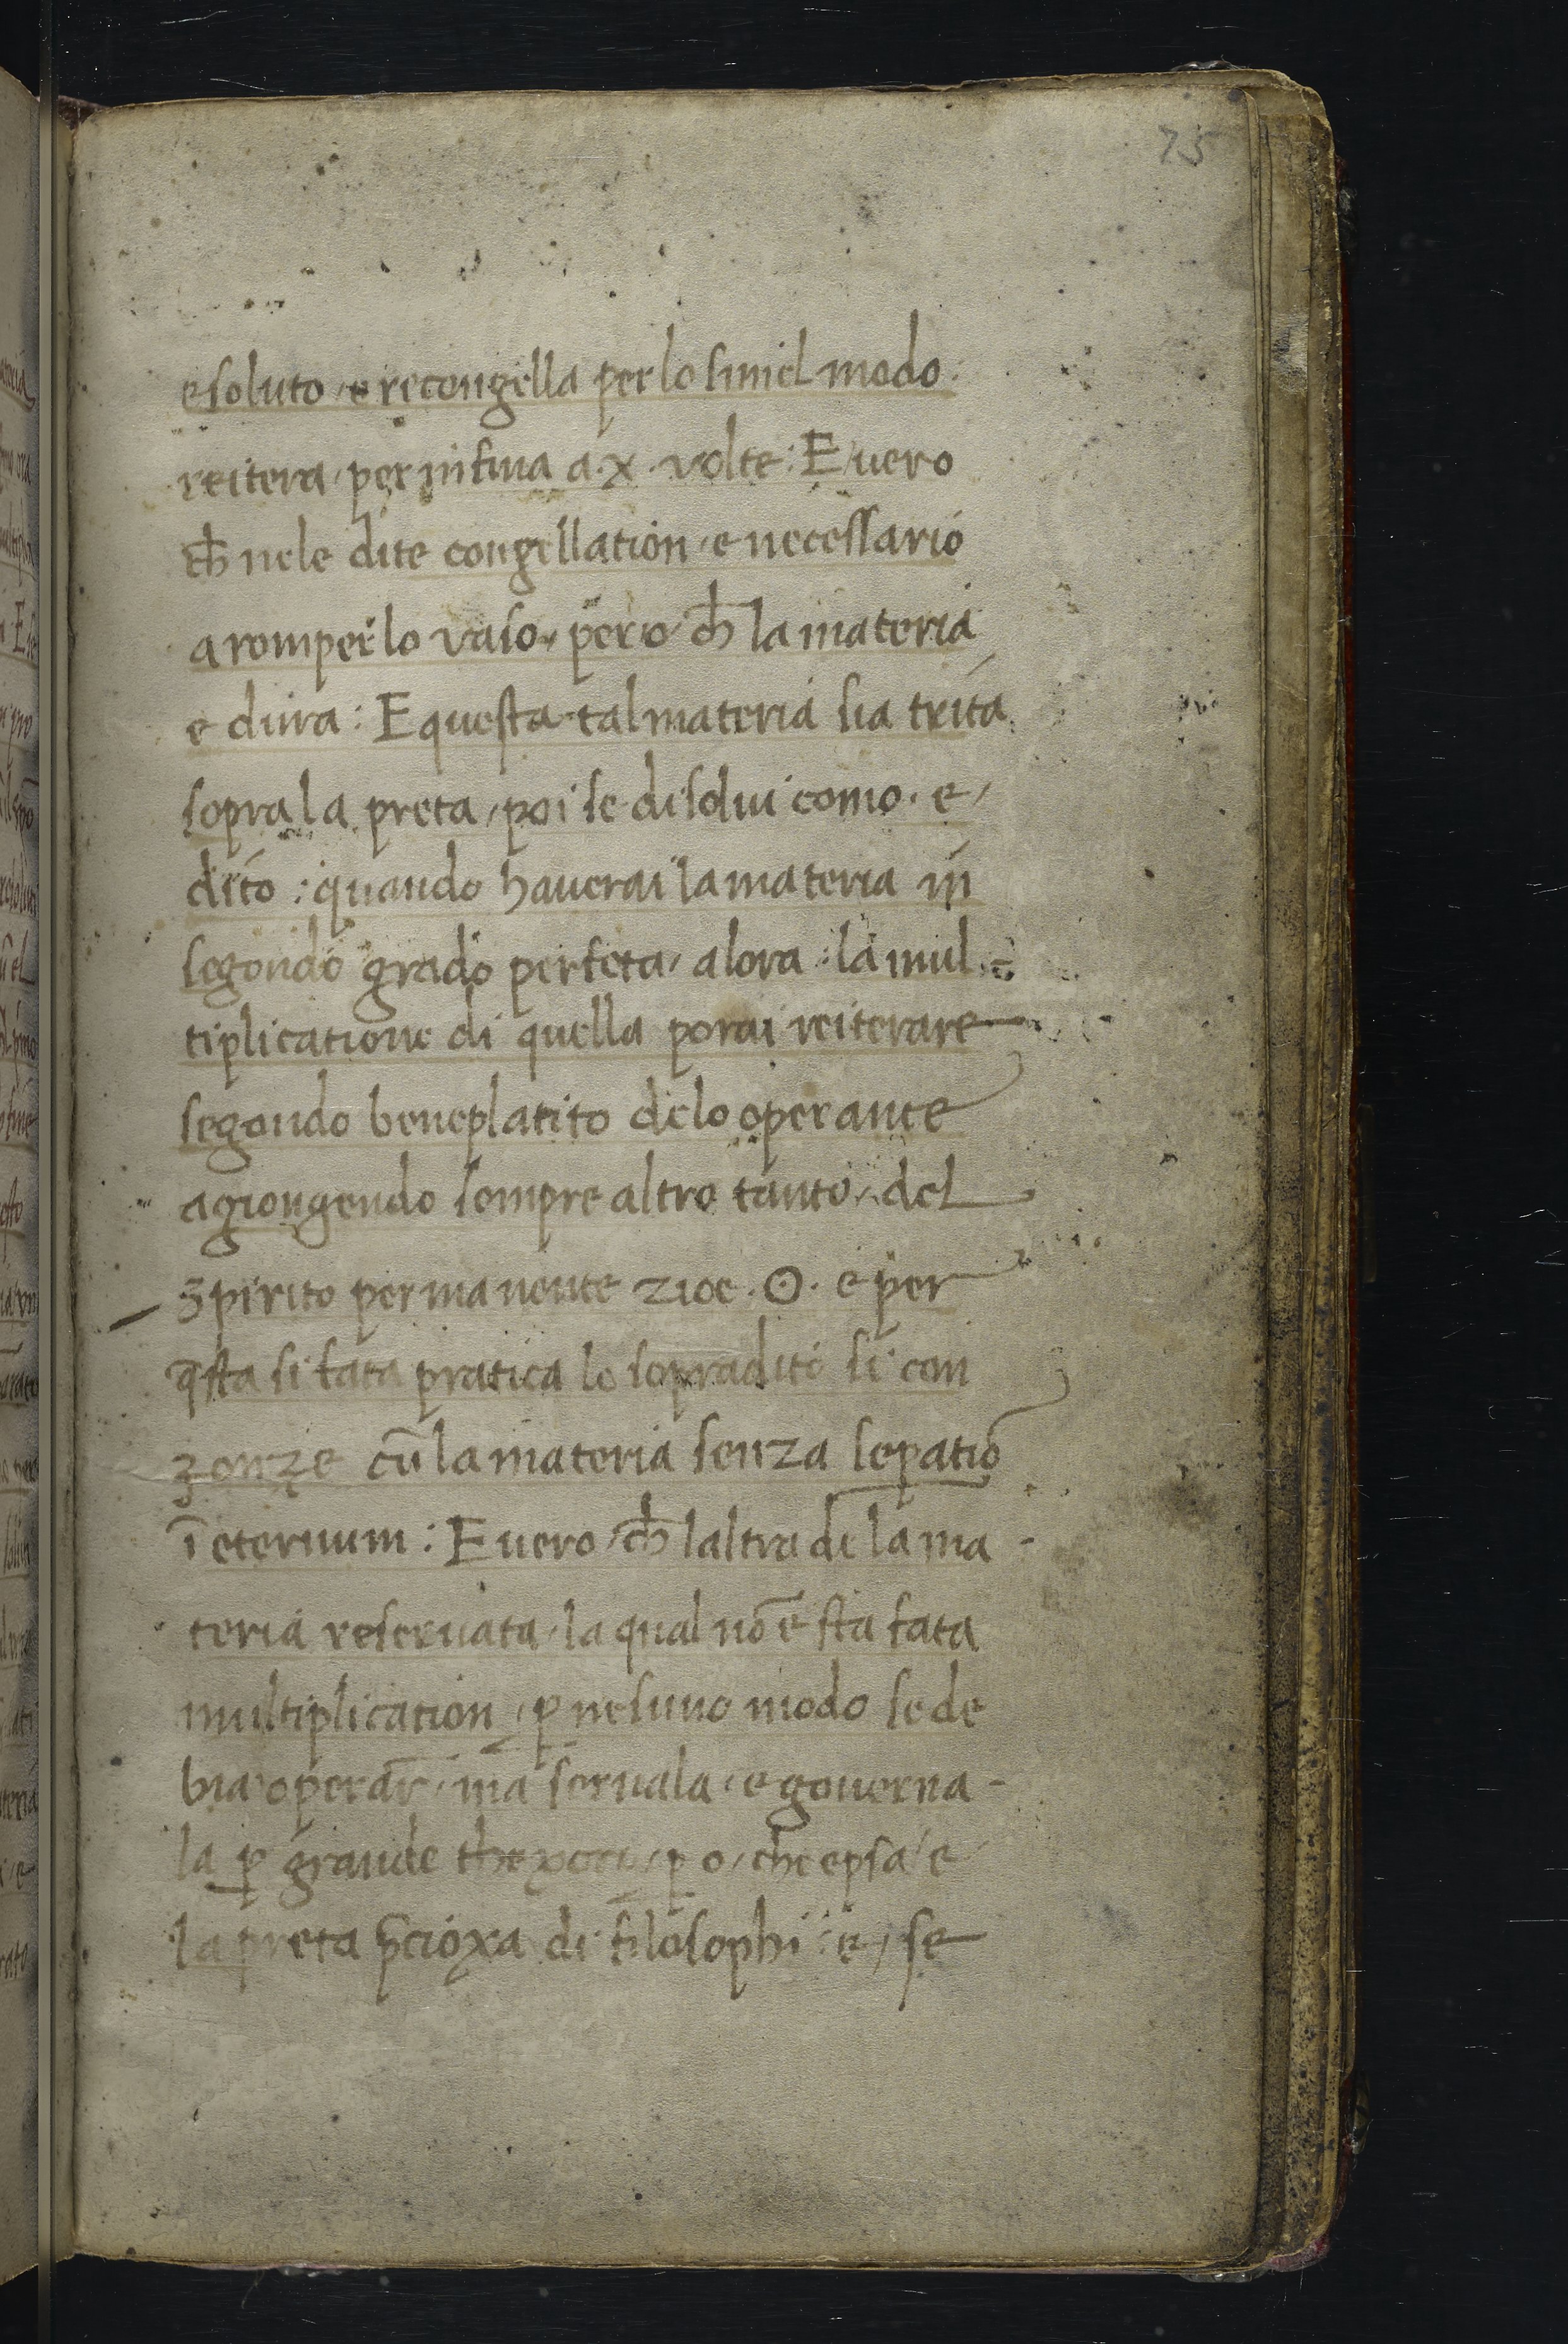 75
e soluto / e recongella per lo simel modo
reitera / per infina a · x · volte : E / vero
ch̄ nele dite congellation / e necessario
a romper lo vaso / pero / ch̄ la materia
e dura : E questa tal materia sia trita
sopra la preta / poi se disolui como · e /
dito : quando hauerai la materia in
segondo grado perfeta / alora : la mul÷
tiplicatione di quella porai reiterare
segondo beneplatito de lo operante
agiongendo sempre altro tanto / del
spirito permanente zioe · ☉ · e per
q̄sta si fata pratica lo sopradito si con
zonze cū la materia senza sepatiō
ī eternum : E uero / ch̄ laltra de la ma -
teria reseruata / la qual nō e sta fata
multiplication / ꝑ nesuno modo se de
bia operar̄ / ma seruala / e gouerna -
la ꝑ grande thexoro / ꝑ o / che epsa / e
la preta p̄cioxa di filosophi : e / se